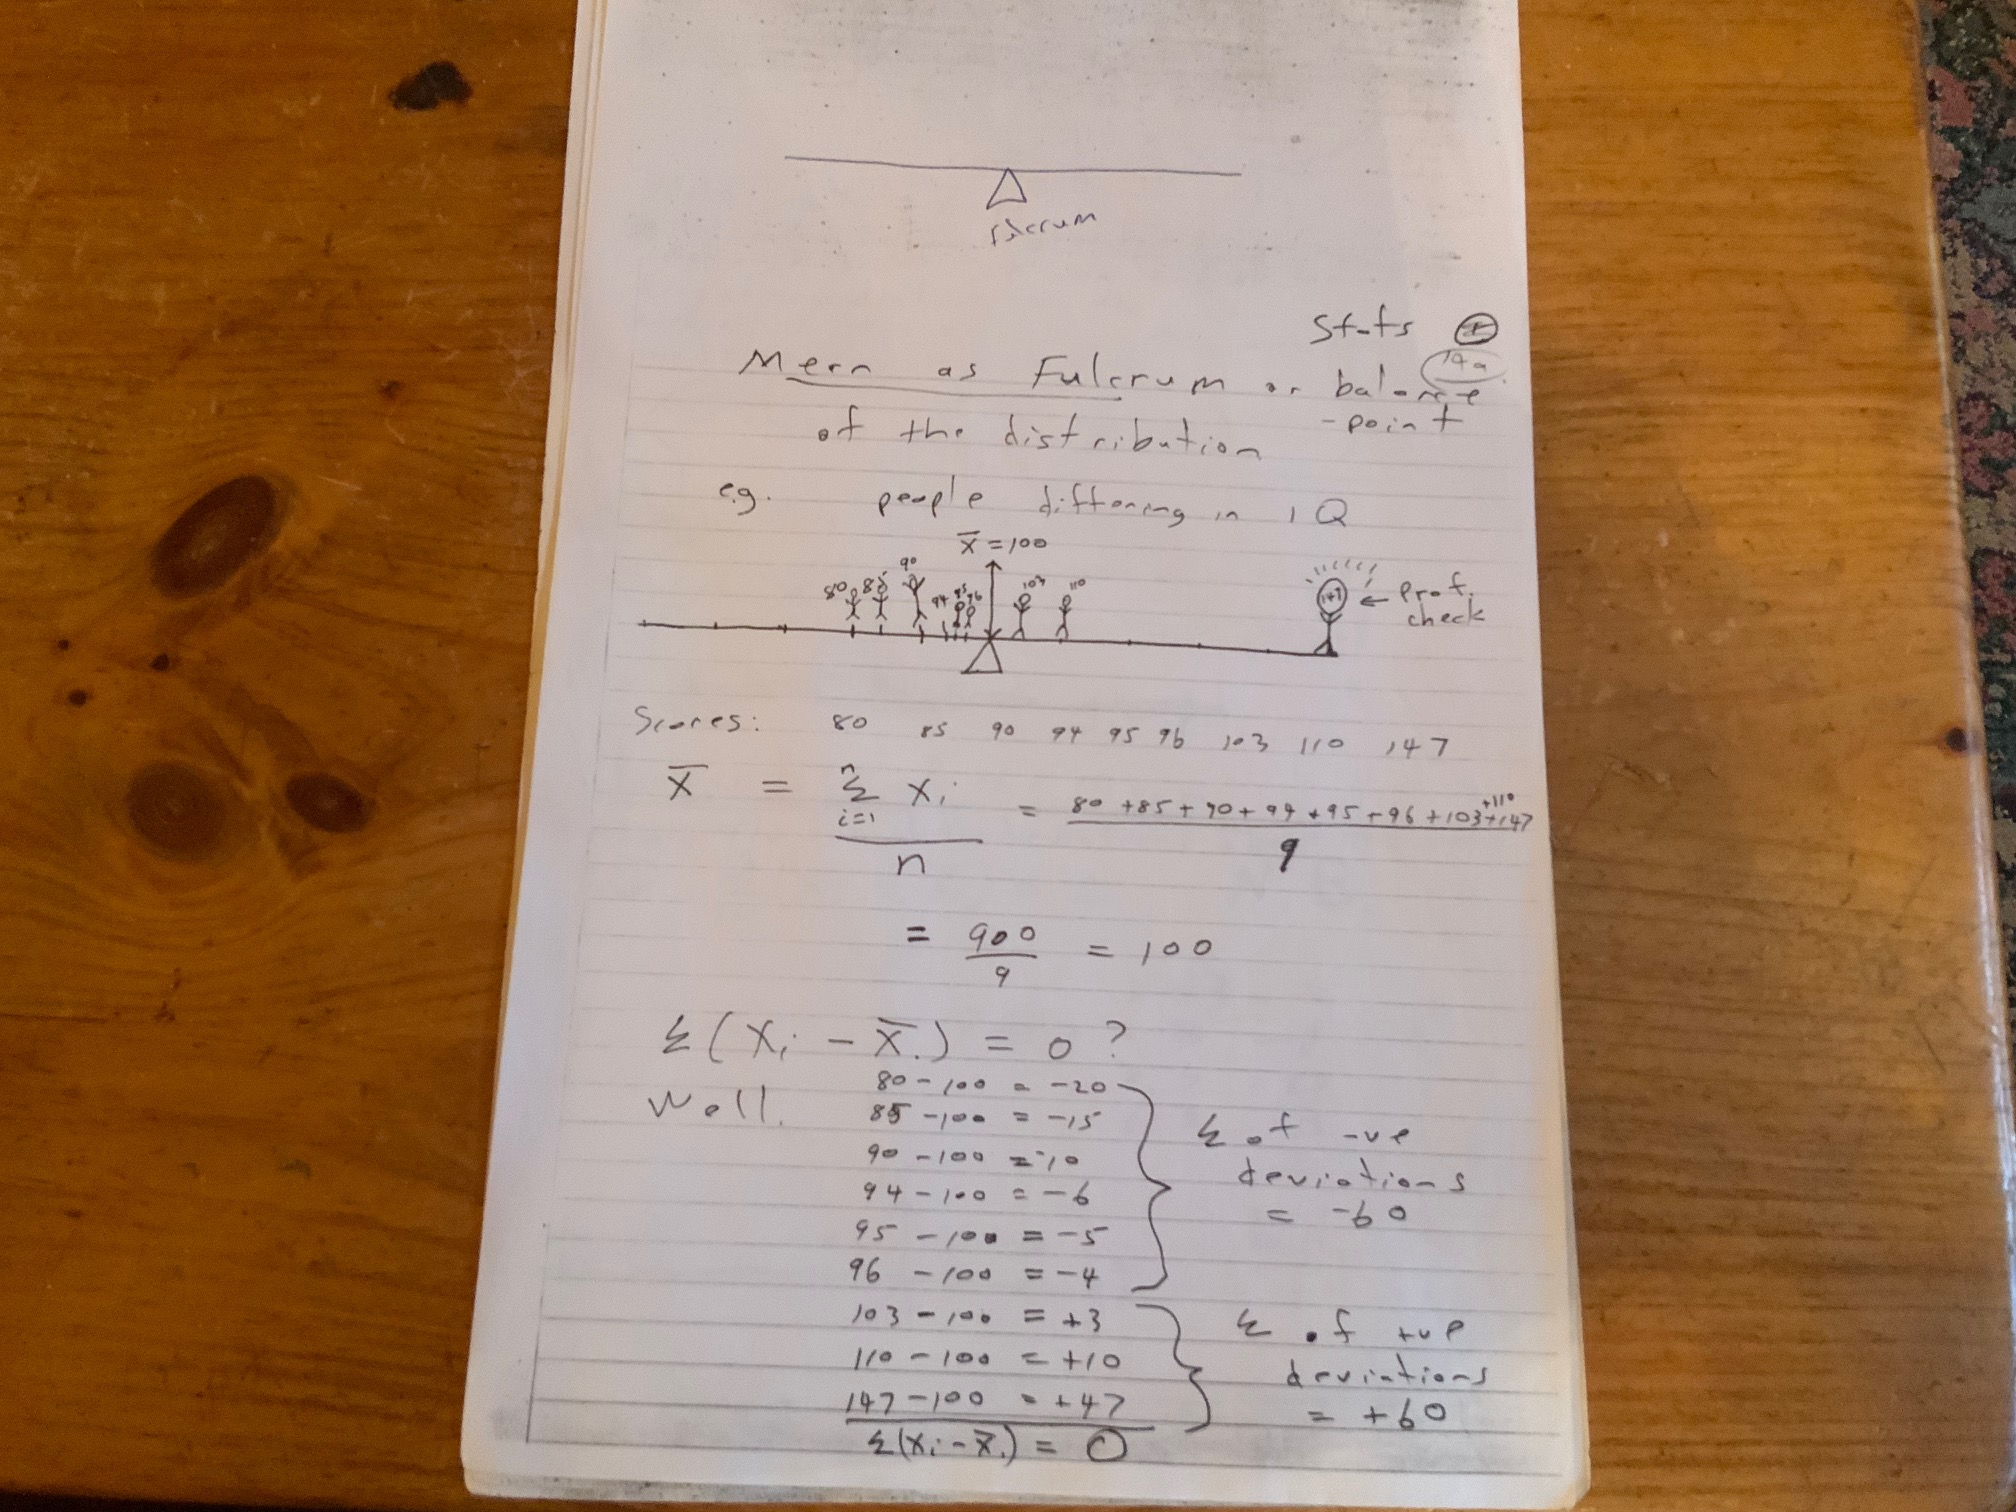 fulcrum
Stats
14a
Mean as Fulcrum or balance
-point
of the distribution
e.g. people differing in IQ
x̄ = 100
80 85 90 94 95 96 103 110 147
← Prof. check
Scores: 80 85 90 94 95 96 103 110 147
x̄ = Σ xᵢ / n = 80 + 85 + 90 + 94 + 95 + 96 + 103 + 110 + 147 / 9
n
i=1
= 900 / 9 = 100
Σ(Xᵢ - X̄.) = 0?
Well. 80 - 100 = -20
85 - 100 = -15
90 - 100 = -10
94 - 100 = -6
95 - 100 = -5
96 - 100 = -4
Σ of -ve
deviations
= -60
103 - 100 = +3
110 - 100 = +10
147 - 100 = +47
Σ of +ve
deviations
= +60
Σ(Xᵢ - X̄.) = 0